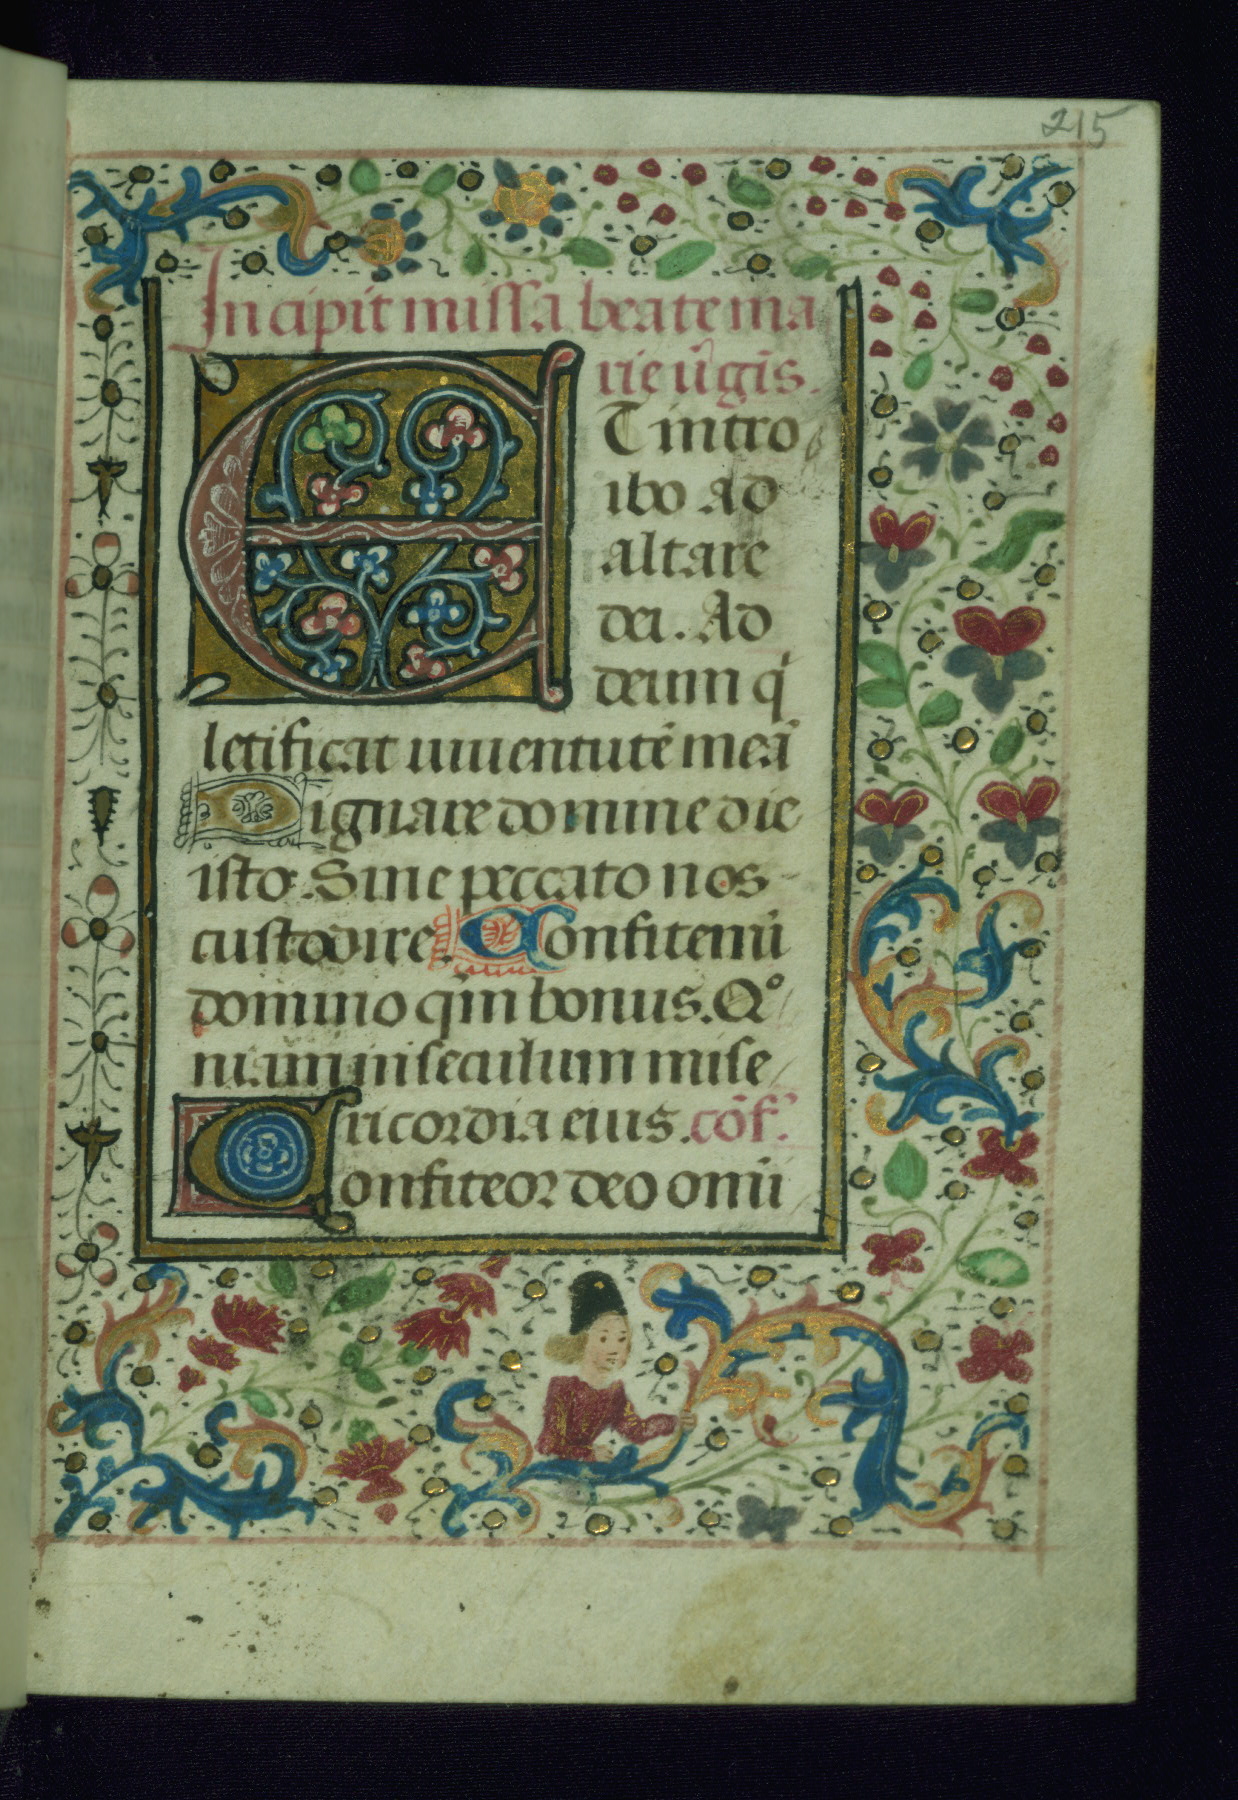 215
Incipit missa beate ma
rie v̄gīs.
ET intro
ibo ad
altare
dei. Ad
deum q̇
letificat iuuentutē meā
Dignare domine die
isto. Sine peccato nos
custodire. Confitemī
domino qm̄ bonus. Qº
niam in seculum mise
ricordia eius. cōf.
Confiteor deo omī